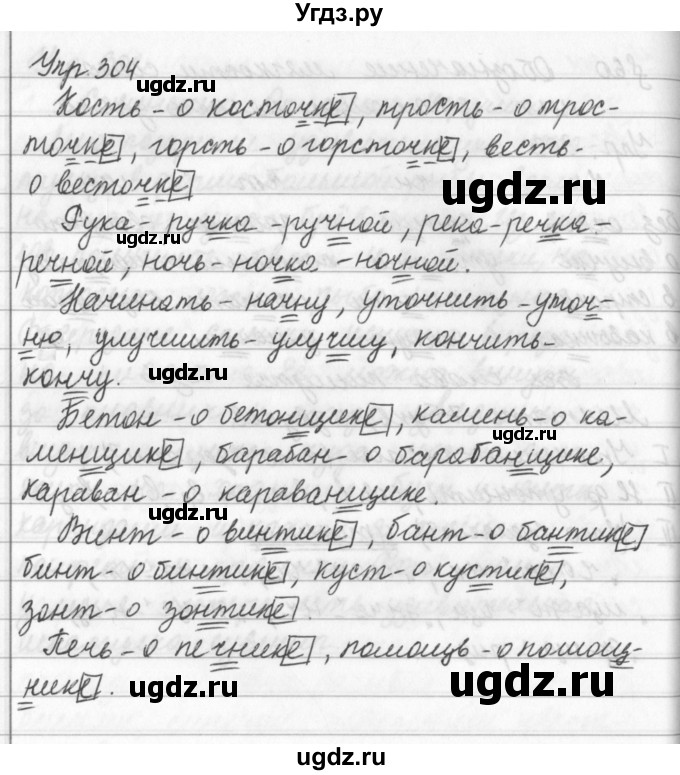 Угдз.ру
Упр. 304
ugdz.ru
Кость - о косточке, трость - о трос-
точке, горсть - о горсточке, весть -
ugdz.ru
ugdz.ru
о весточке
Рука - ручка - ручной, река - речка -
ugdz.ru
речной, ночь - ночка - ночной.
Начинать - начну, уточнить - уточ-
ню, улучшить - улучшу, кончить -
кончу.
ugdz.ru
Бетон - о бетонщике, камень - о ка-
ugdz.ru
менщике, барабан - о барабанщике,
караван - о караванщике.
ugdz.ru
Винт - о винтике, бант - о бантике
бинт - о бинтике, куст - о кустике,
зонт - о зонтике.
ugdz.ru
Печь - о печнике, помощь - о помощ-
нике.
ugdz.ru
ugdz.ru
ugdz.ru